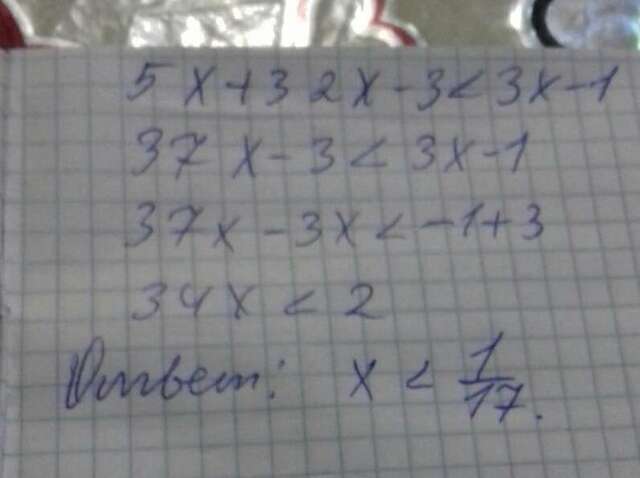 5x+32x-3<3x-1
37x-3<3x-1
37x-3x<-1+3
34x<2
Ответ: x<1/17.